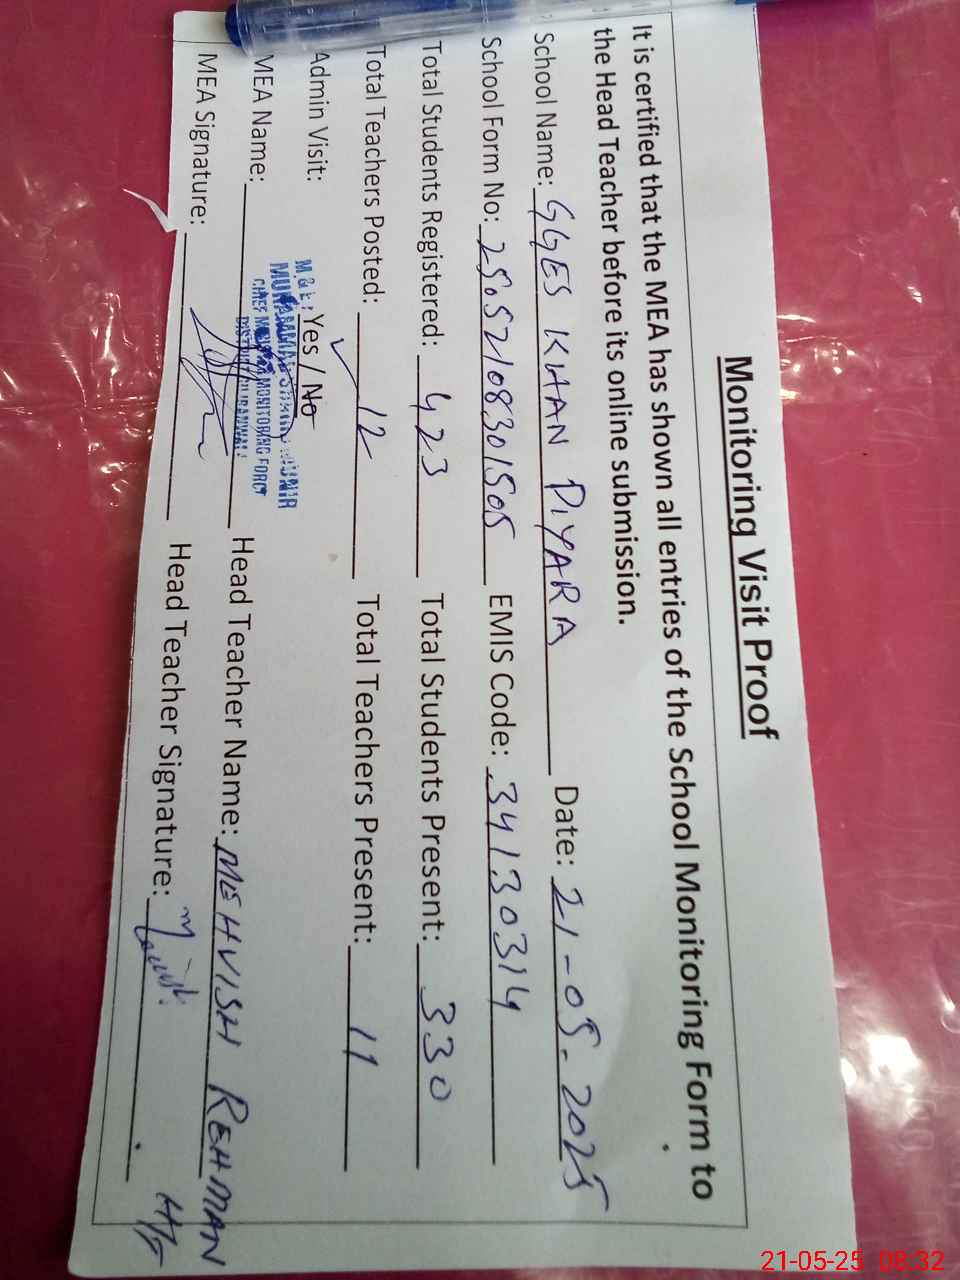 Monitoring Visit Proof
It is certified that the MEA has shown all entries of the School Monitoring Form to
the Head Teacher before its online submission.
School Name: GGES KHAN PIYARA Date: 21-05-2025
School Form No: 25052108301505 EMIS Code: 34130314
Total Students Registered: 423 Total Students Present: 330
Total Teachers Posted: 12 Total Teachers Present: 11
Admin Visit: Yes / No
M.& E:
MUHAMMAD MUNIR
CHIEF MONITORING FORCE
DISTRICT
MEA Name: Head Teacher Name: MEHVISH REHMAN
MEA Signature: Head Teacher Signature:
21-05-25 08:32